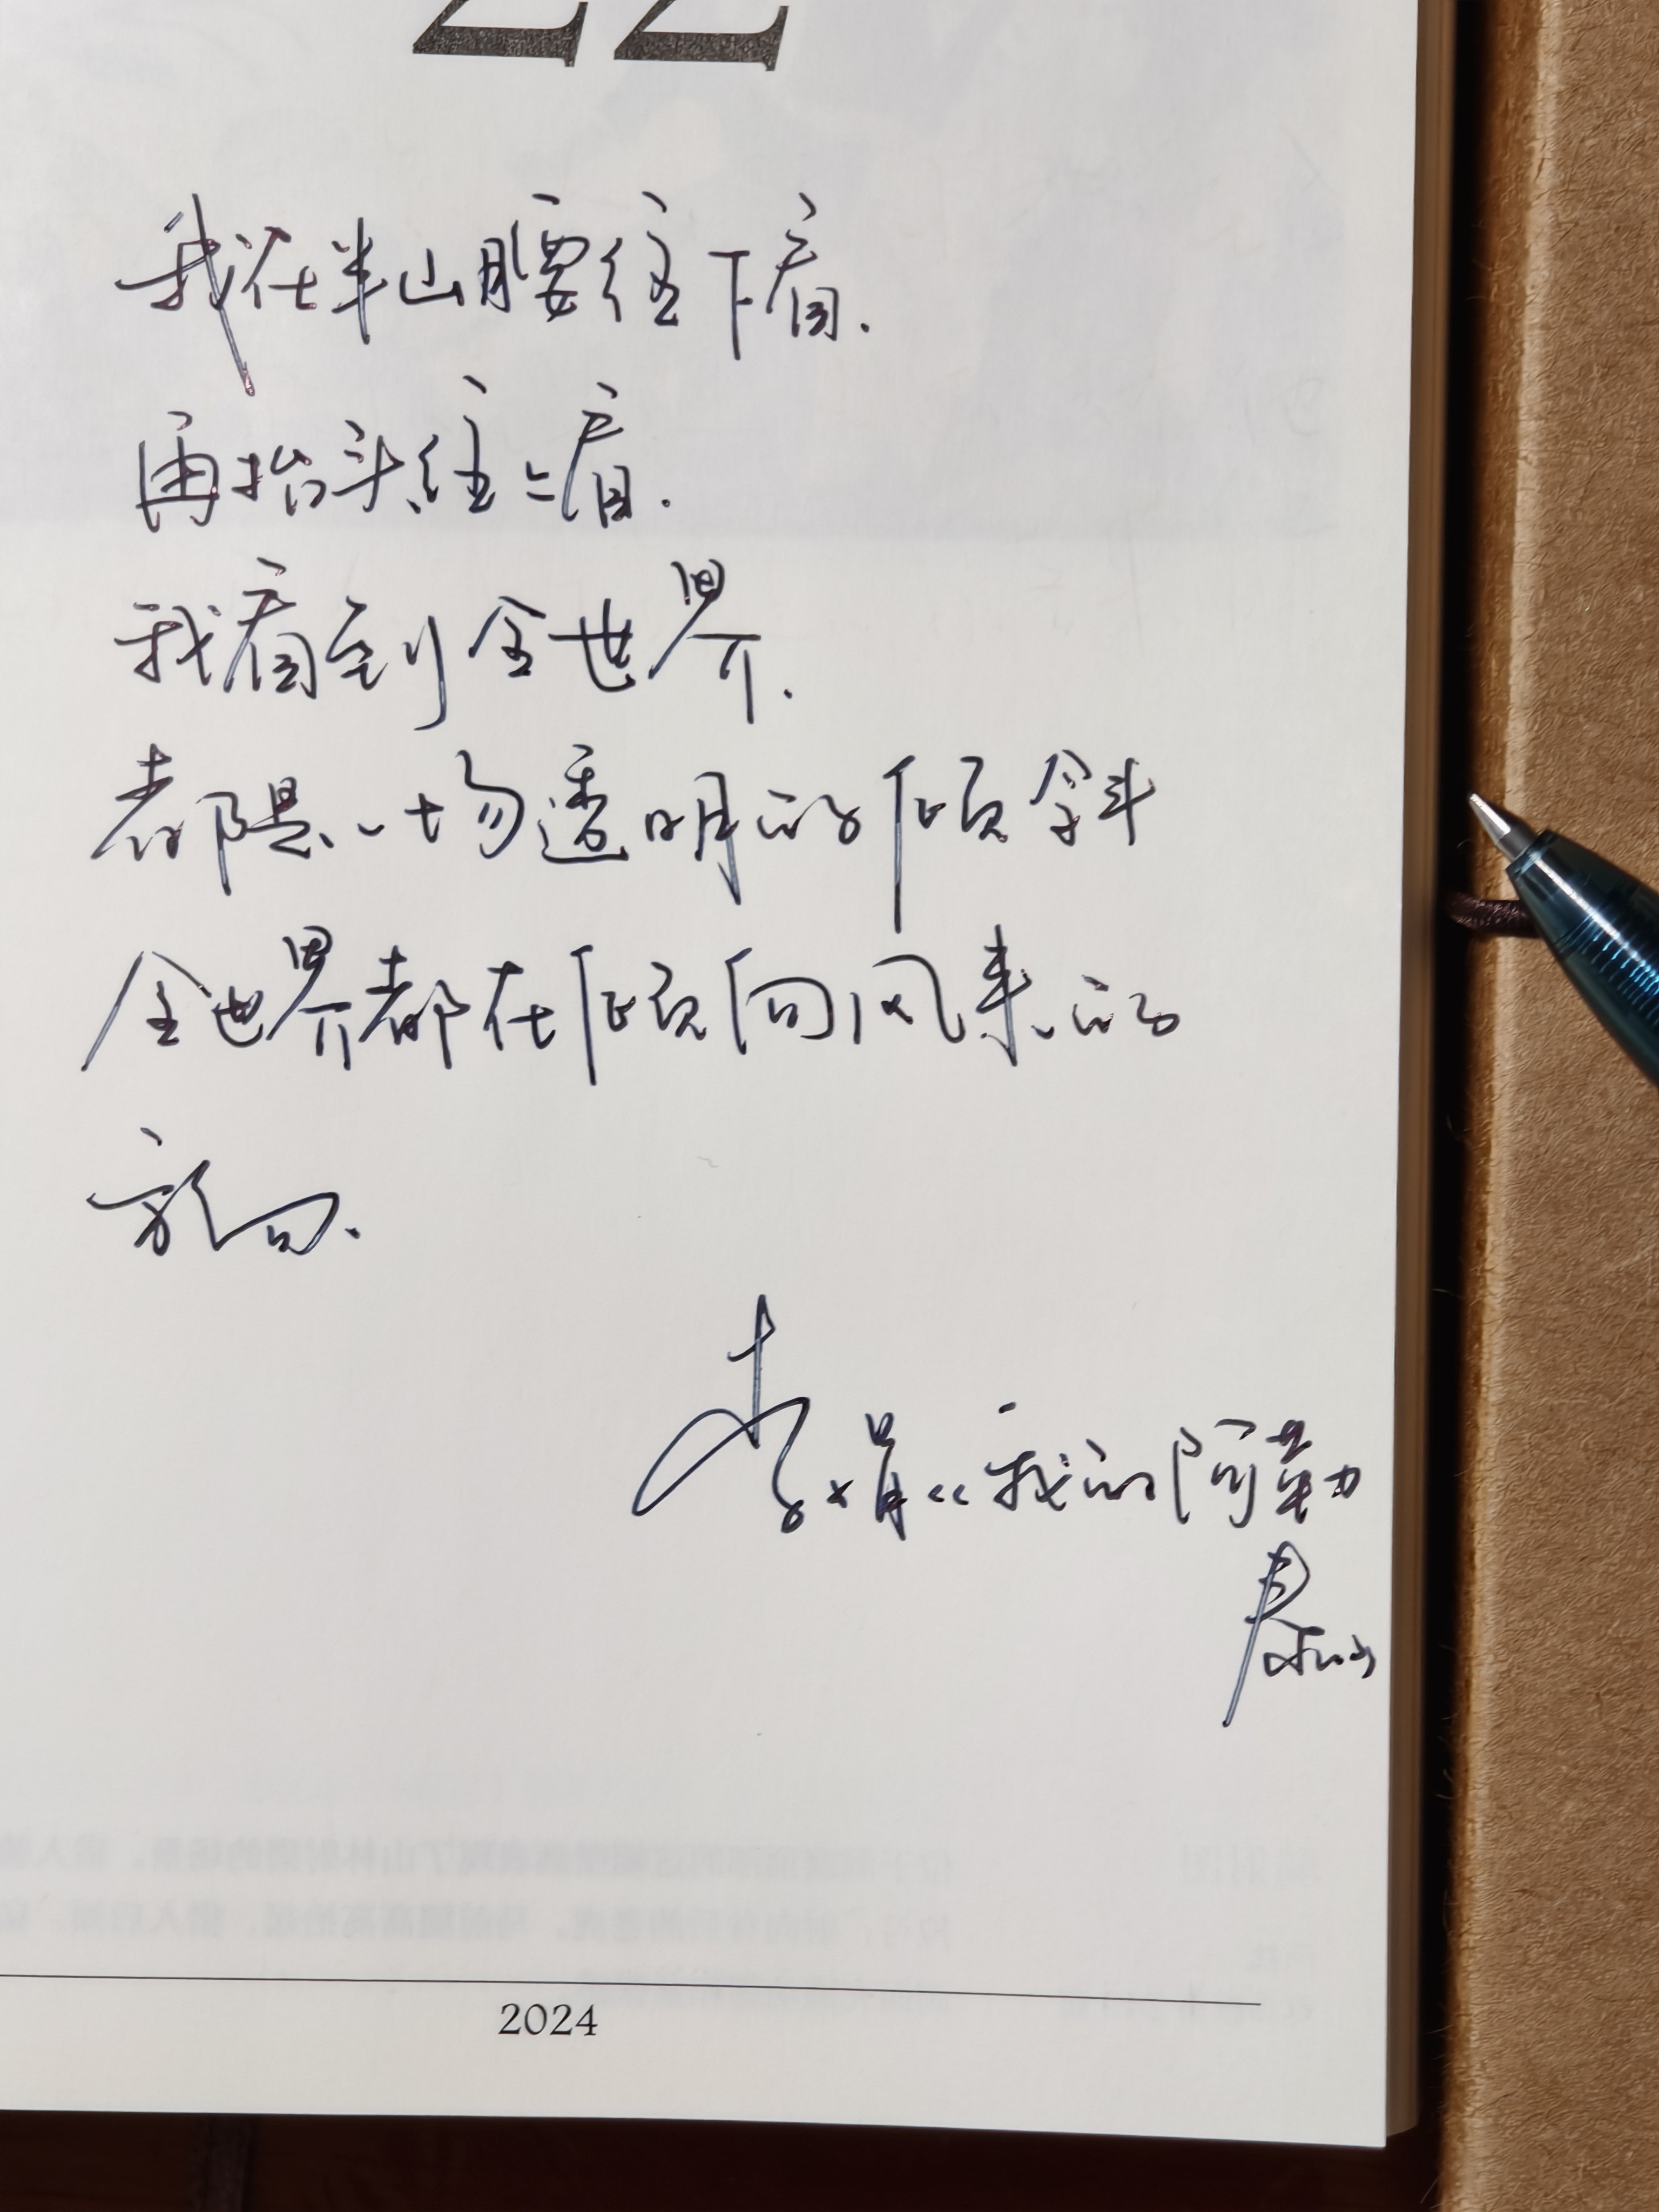 22
我在半山腰往下看.
再抬头往上看.
我看到全世界.
都是一场透明的倾斜
全世界都在倾向风来的
方向.
李娟《我的阿勒
泰》
2024